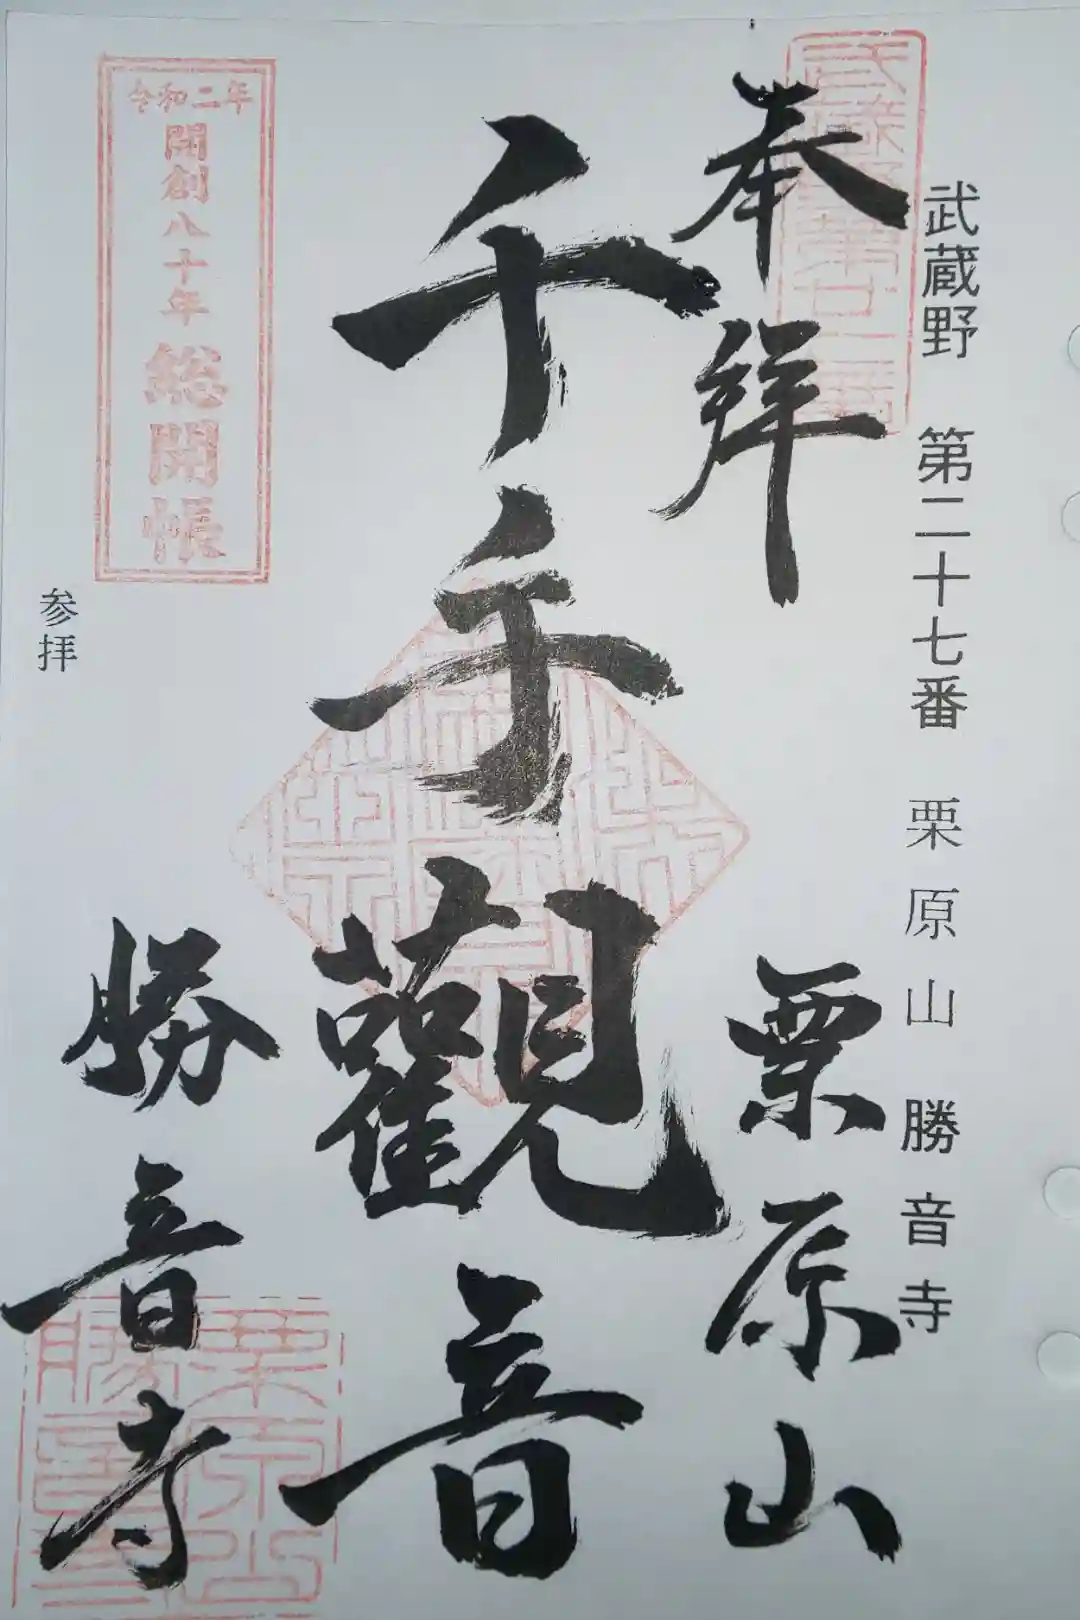 武蔵野 第二十七番 栗原山 勝音寺
奉拝
栗原山
千手觀音
勝音寺
令和二年
開創八十年
総開帳
参拝